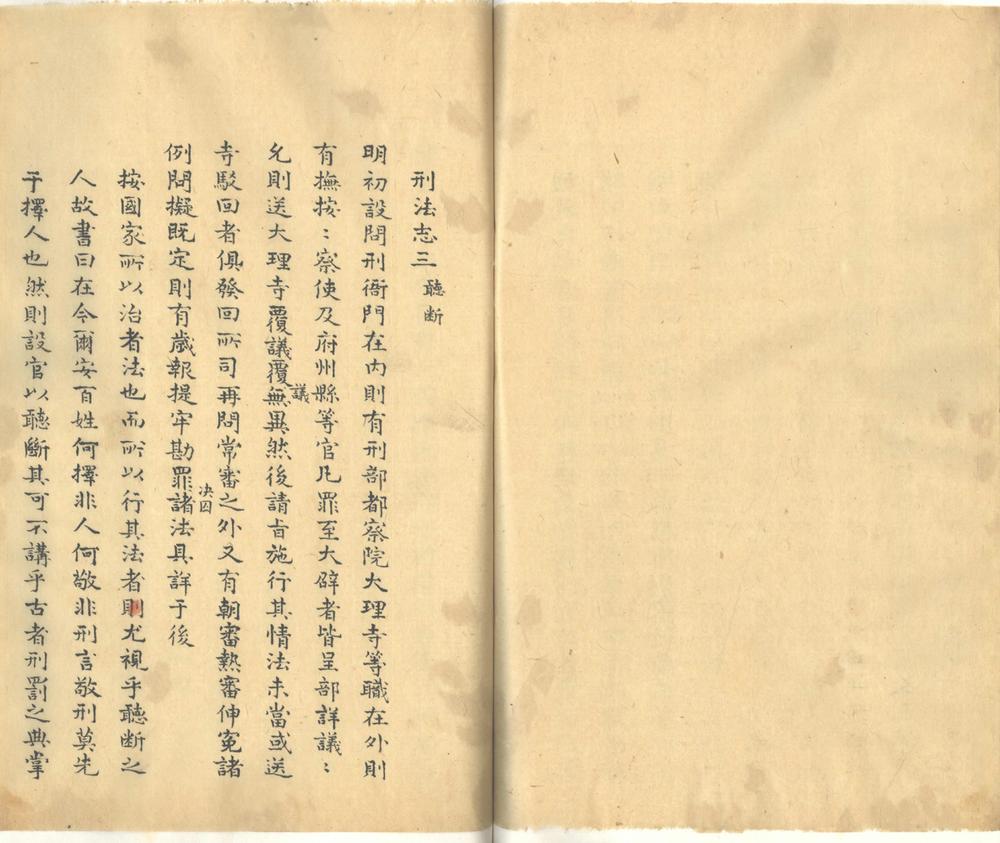 刑法志三 聽断
明初設問刑衙門在內則有刑部都察院大理寺等職在外則
有撫按〻察使及府州縣等官凡罪至大辟者皆呈部詳議〻
允則送大理寺覆議覆議無異然後請旨施行其情法未當或送
寺駁回者俱發回所司再問常審之外又有朝審熱審伸冤諸
例問擬既定則有歲報提牢勘罪决囚諸法具詳于後
按國家所以治者法也而所以行其法者則尤視乎聽断之
人故書曰在今爾安百姓何擇非人何敬非刑言敬刑莫先
于擇人也然則設官以聽斷其可不講乎古者刑罰之典掌